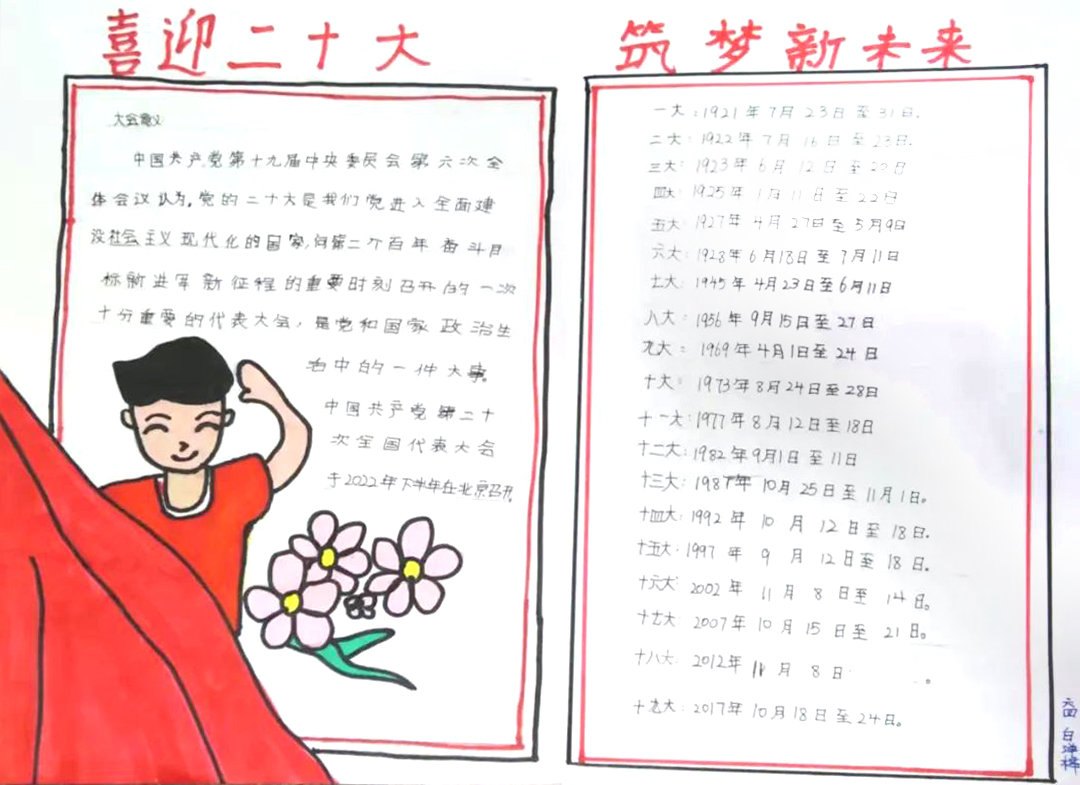 喜迎二十大
筑梦新未来
大会意义
中国共产党第十九届中央委员会第六次全
体会议认为,党的二十大是我们党进入全面建
设社会主义现代化的国家,向第二个百年奋斗目
标新进军新征程的重要时刻召开的一次
十分重要的代表大会,是党和国家政治生
活中的一件大事。
中国共产党第二十
次全国代表大会
于2022年下半年在北京召开
一大:1921年7月23日至31日.
二大:1922年7月16日至23日.
三大:1923年6月12日至20日
四大:1925年1月11日至22日
五大:1927年4月27日至5月9日
六大:1928年6月18日至7月11日
七大:1945年4月23日至6月11日
八大:1956年9月15日至27日
九大:1969年4月1日至24日
十大:1973年8月24日至28日
十一大:1977年8月12日至18日
十二大:1982年9月1日至11日
十三大:1987年10月25日至11月1日。
十四大:1992年10月12日至18日.
十五大:1997年9月12日至18日.
十六大:2002年11月8日至14日。
十七大:2007年10月15日至21日。
十八大:2012年11月8日 。
十九大:2017年10月18日至24日。